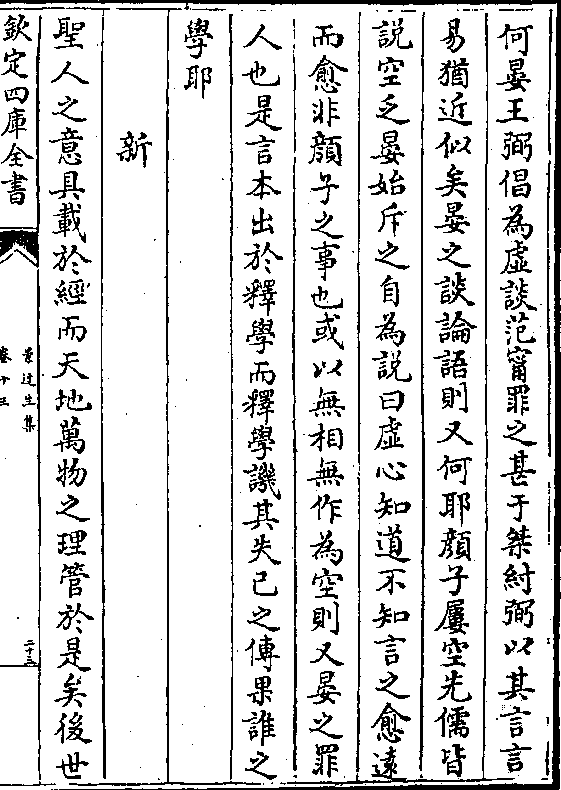 何晏王弼倡為虛談范甯罪之甚于桀紂弼以其言言
易猶近似矣晏之談論語則又何耶顔子屢空先儒皆
說空乏晏始斥之自為說曰虛心知道不知言之愈遠
而愈非顔子之事也或以無相無作為空則又晏之罪
人也是言本出於釋學而釋學譏其失已之傳果誰之
學耶
新
聖人之意具載於經而天地萬物之理管於是矣後世
欽定四庫全書
景迂生集
卷十三
二十三